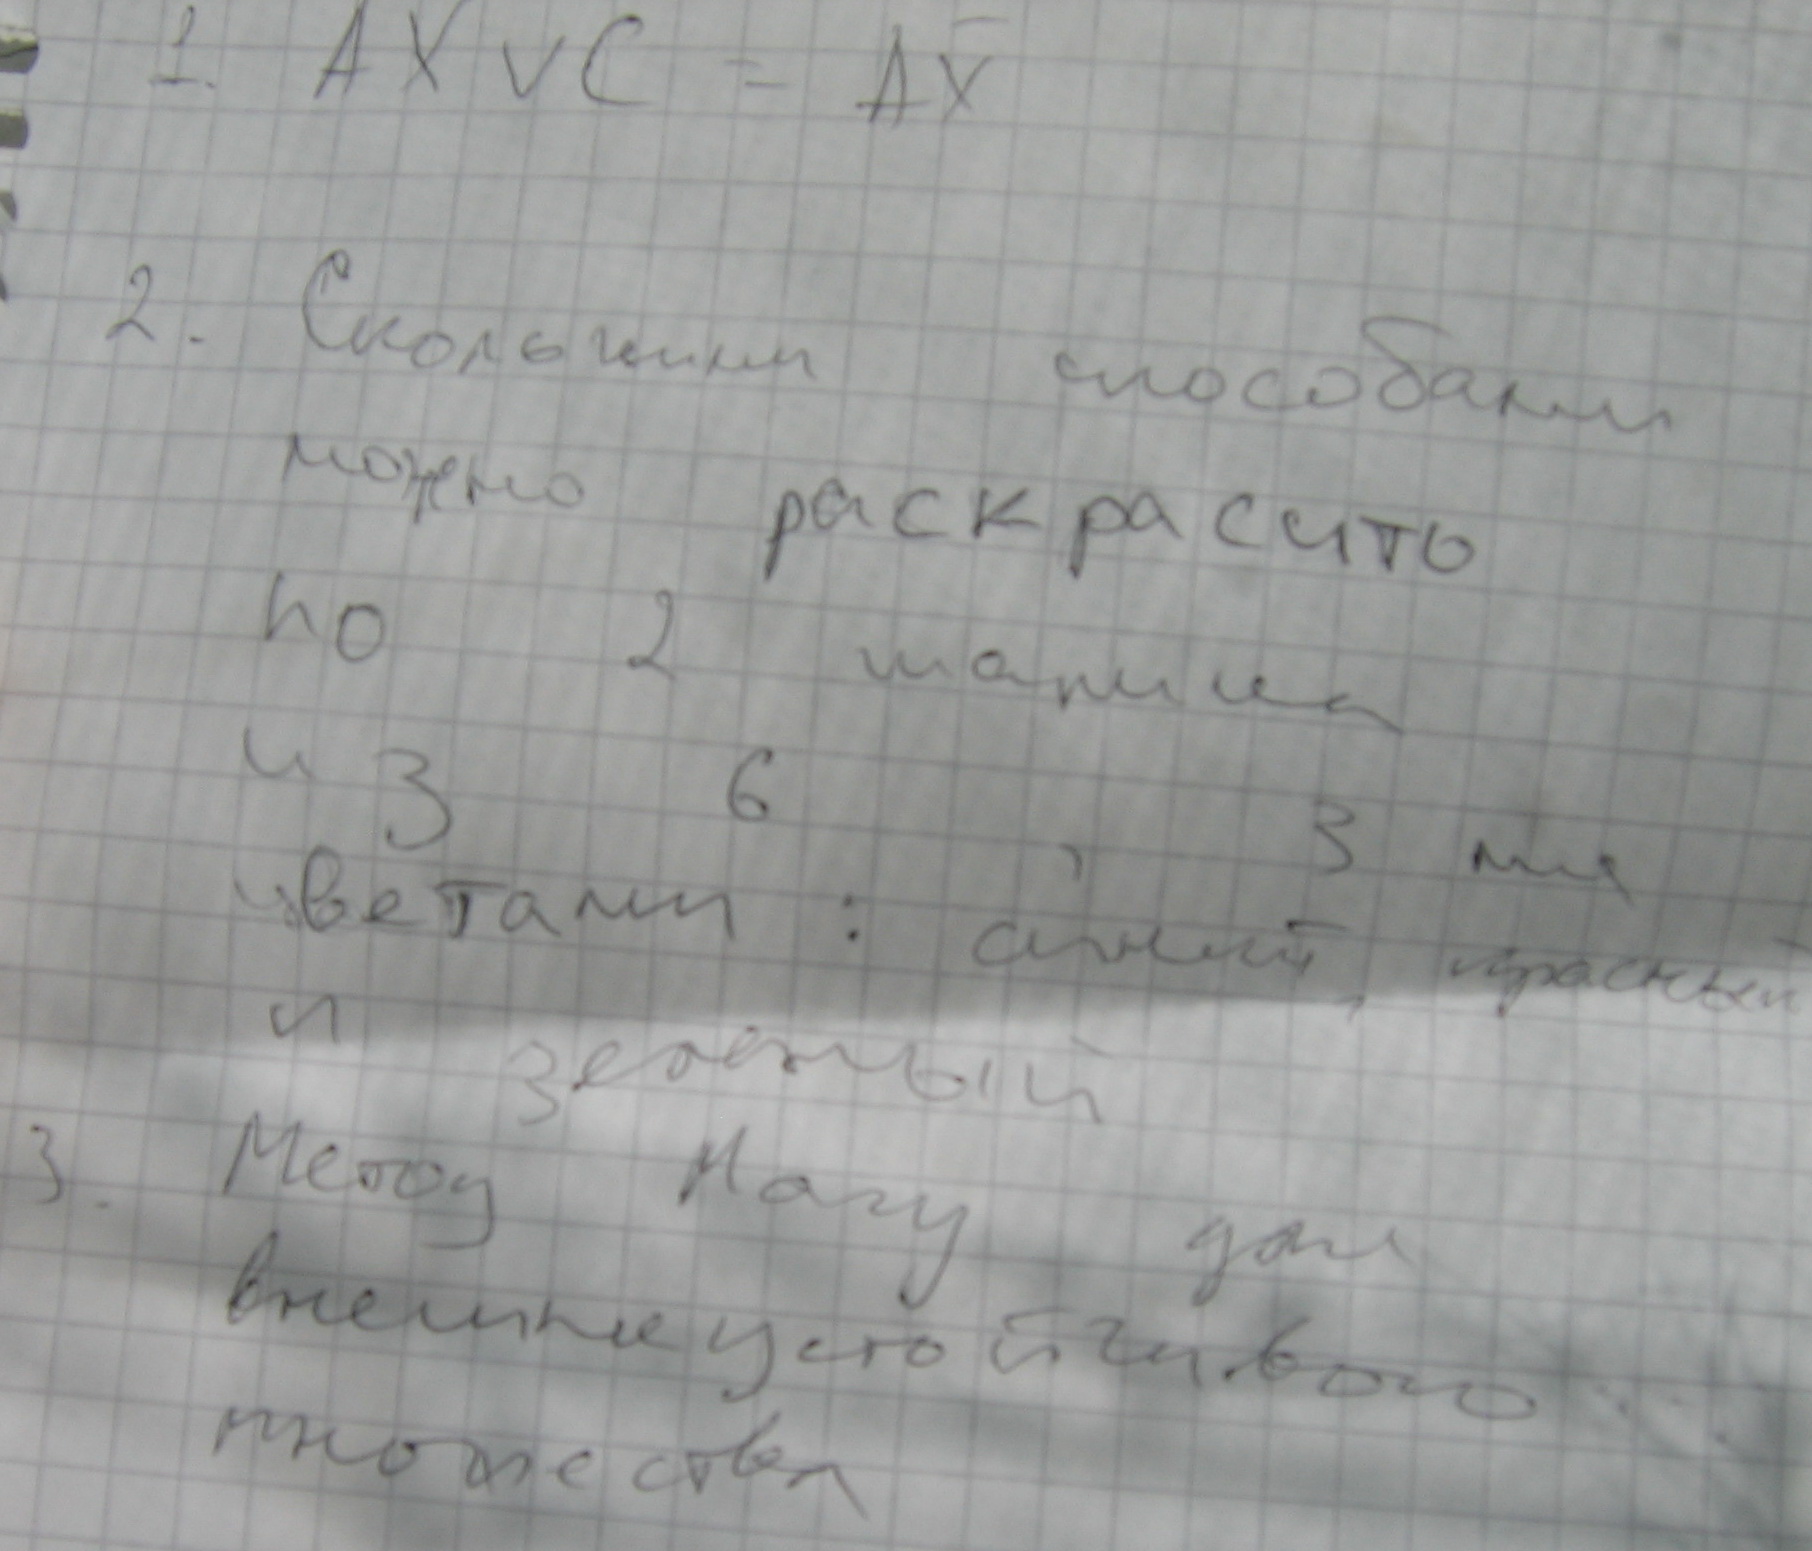 1. AX ∨ C = AX̄
2. Сколькими способами
можно раскрасить
по 2 шарика
из 6 3 мя
цветами : синий, красный
и зеленый
3. Метод Магу для
внешне устойчивого
множества